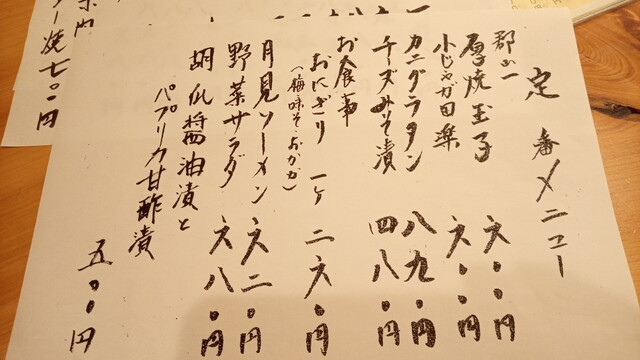 定番メニュー
郡山一
厚焼玉子 六〇〇円
小じゃが田楽 六〇〇円
カニグラタン 八九〇円
チーズみそ漬 四八〇円
お食事
おにぎり 一ケ 二六〇円
(梅味そ・おかか)
月見ソーメン 六二〇円
野菜サラダ 六八〇円
胡瓜醤油漬と
パプリカ甘酢漬
五〇〇円
焼七〇〇円